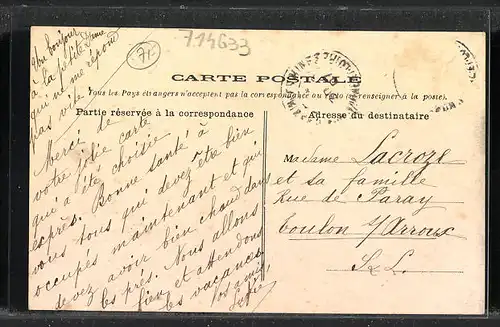 Un bonjour
à la petite
qui ne me répond
pas vite
71
714633
CARTE POSTALE
Tous les Pays étrangers n'acceptent pas la correspondance au recto (se renseigner à la poste).
Partie réservée à la correspondance
Adresse du destinataire
Merci de
votre jolie carte
qui a été choisie
exprès. Bonne santé à
vous tous qui devez être bien
occupés maintenant et qui
devez avoir bien chaud dans
les prés. Nous allons
bien et attendons
les vacances.
Vos amis
Madame Lacroze
et sa famille
Rue de Paray
Toulon s/Arroux
S&L.